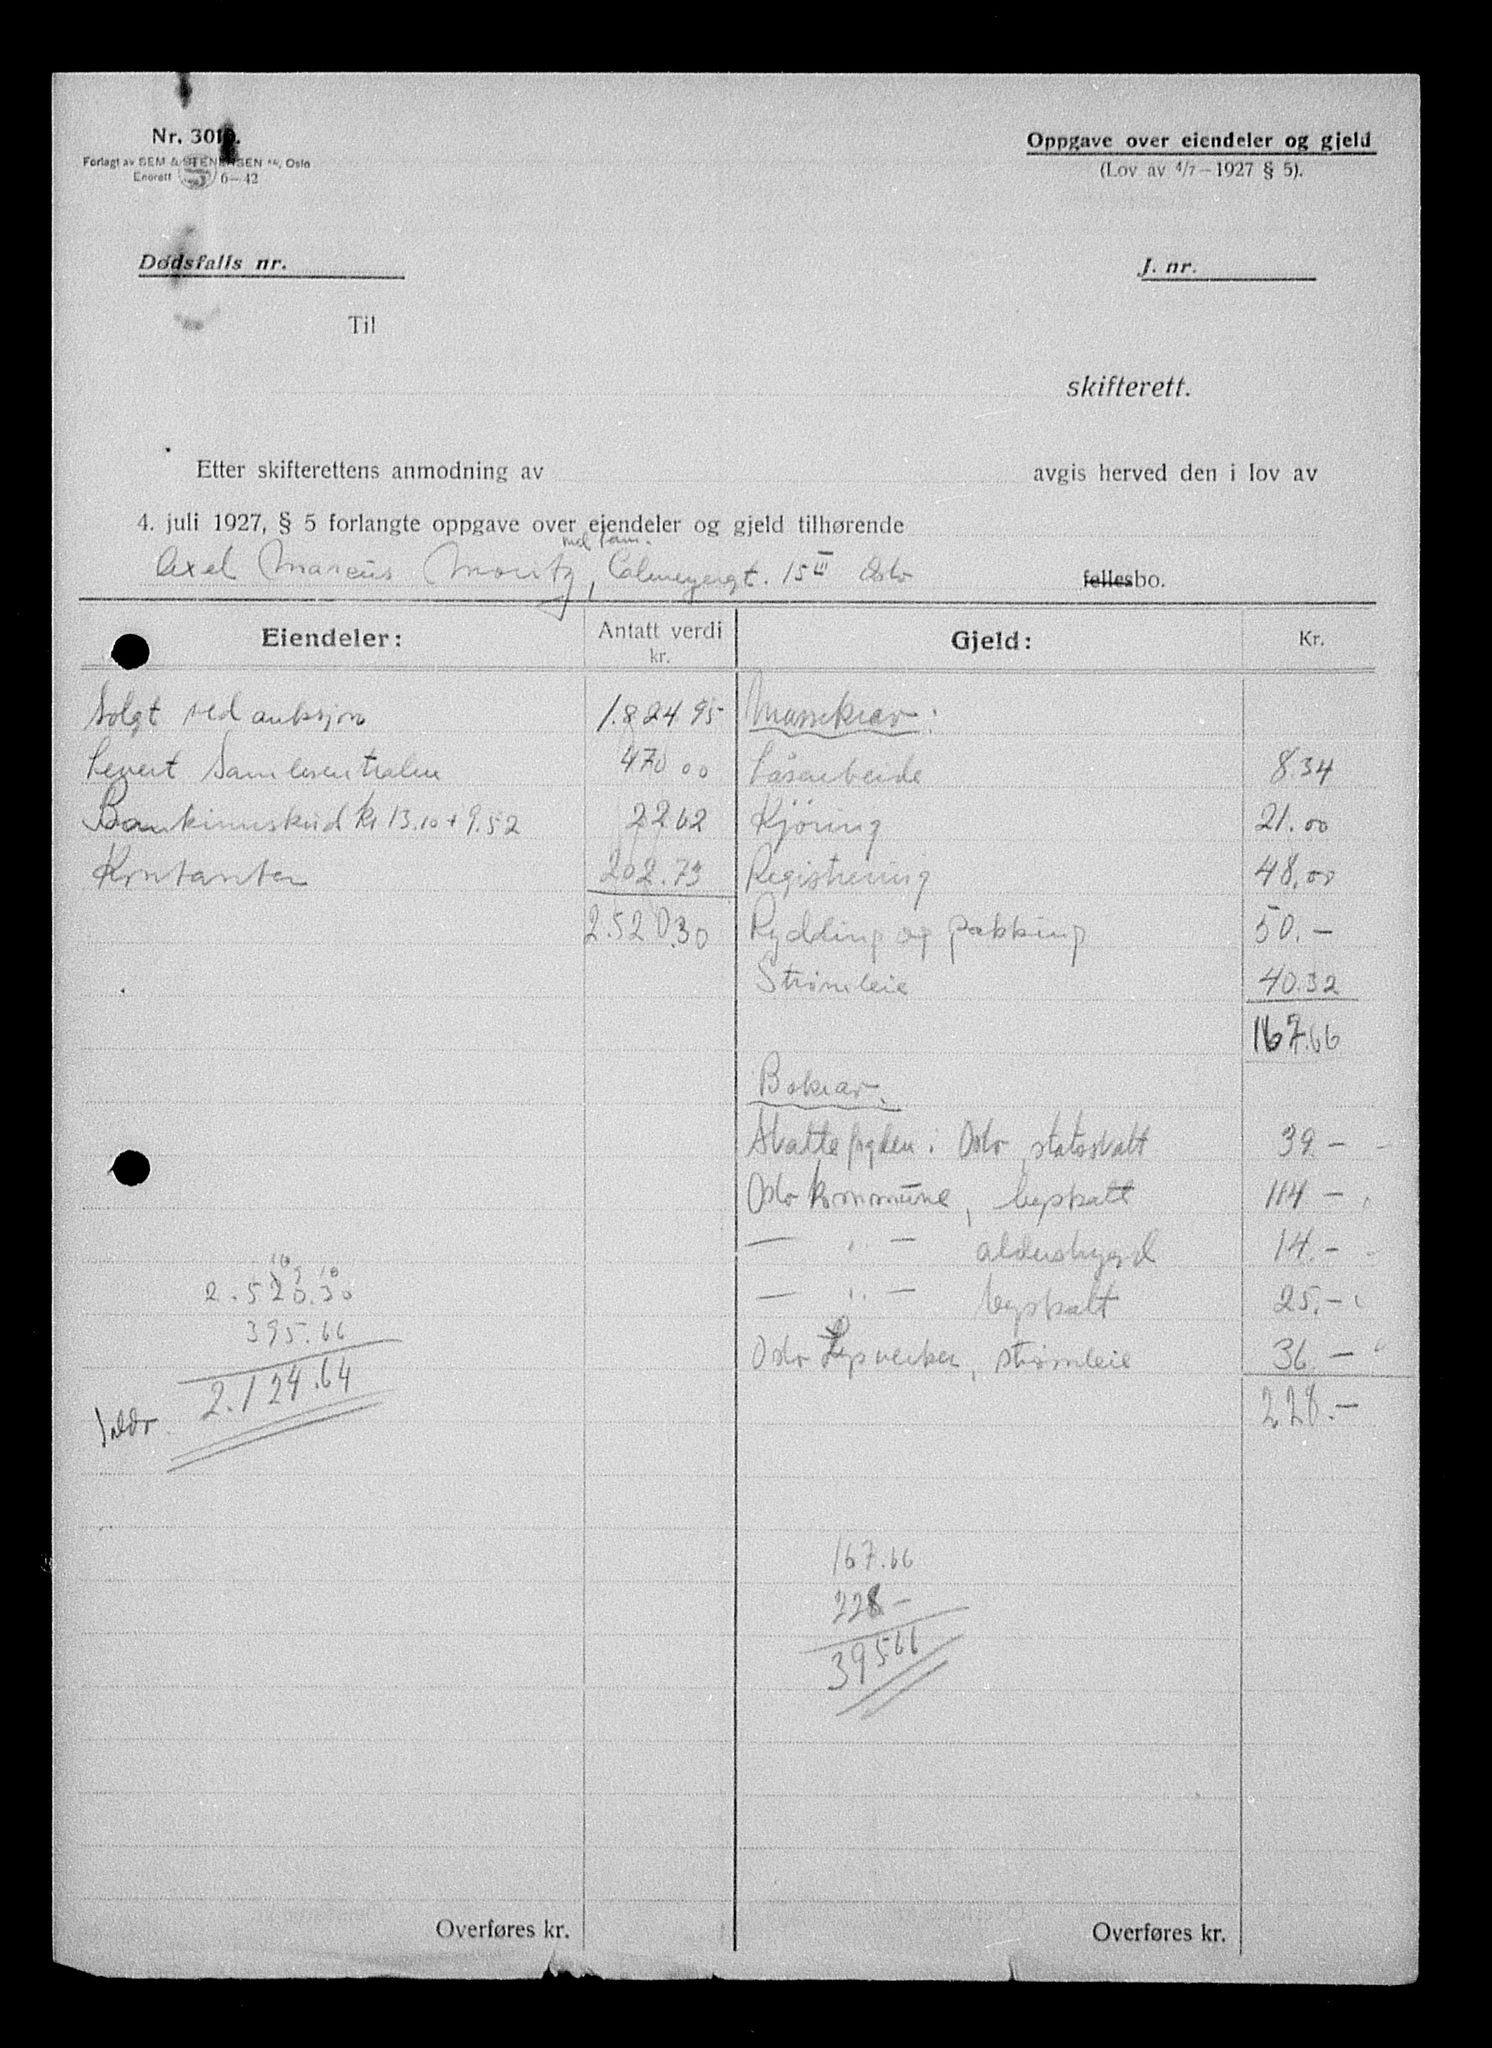 Nr. 301
Oppgave over eiendeler og gjeld
Forlagt av SEM & STENERSEN A/S, Oslo
(Lov av 4/7 – 1927 § 5).
Enerett 6—42
Dødsfalls nr.
J. nr.
Til
skifterett.
Etter skifterettens anmodning av avgis herved den i lov av
4. juli 1927, § 5 forlangte oppgave over eiendeler og gjeld tilhørende
med fam.
Axel Marcus Moritz, Calmeyergt. 15 III Oslo fellesbo.
Eiendeler: Antatt verdi kr. Gjeld: Kr.
Solgt ved auksjon 1.824 95 Massekrav:
Levert Samlesentralen 470 00 Låsarbeide 8.34
Bankinnskud kr 13.10 + 9.52 22 62 Kjöring 21.00
Kontanter 202.73 Registrering 48.00
2.520.30 Rydding og pakking 50.—
Strömleie 40.32
167.66
Bokrav.
Skattefogden i Oslo, statsskatt 39 —
Oslo kommune, byskatt 114 —
— " — alderstrygd 14.—
— " — byskatt 25.—
Oslo Lysverker, strömleie 36 —
228.—
10 9 10
2.520.30
395.66
2.124.64
Saldo
167.66
228 —
395 66
Overføres kr. Overføres kr.